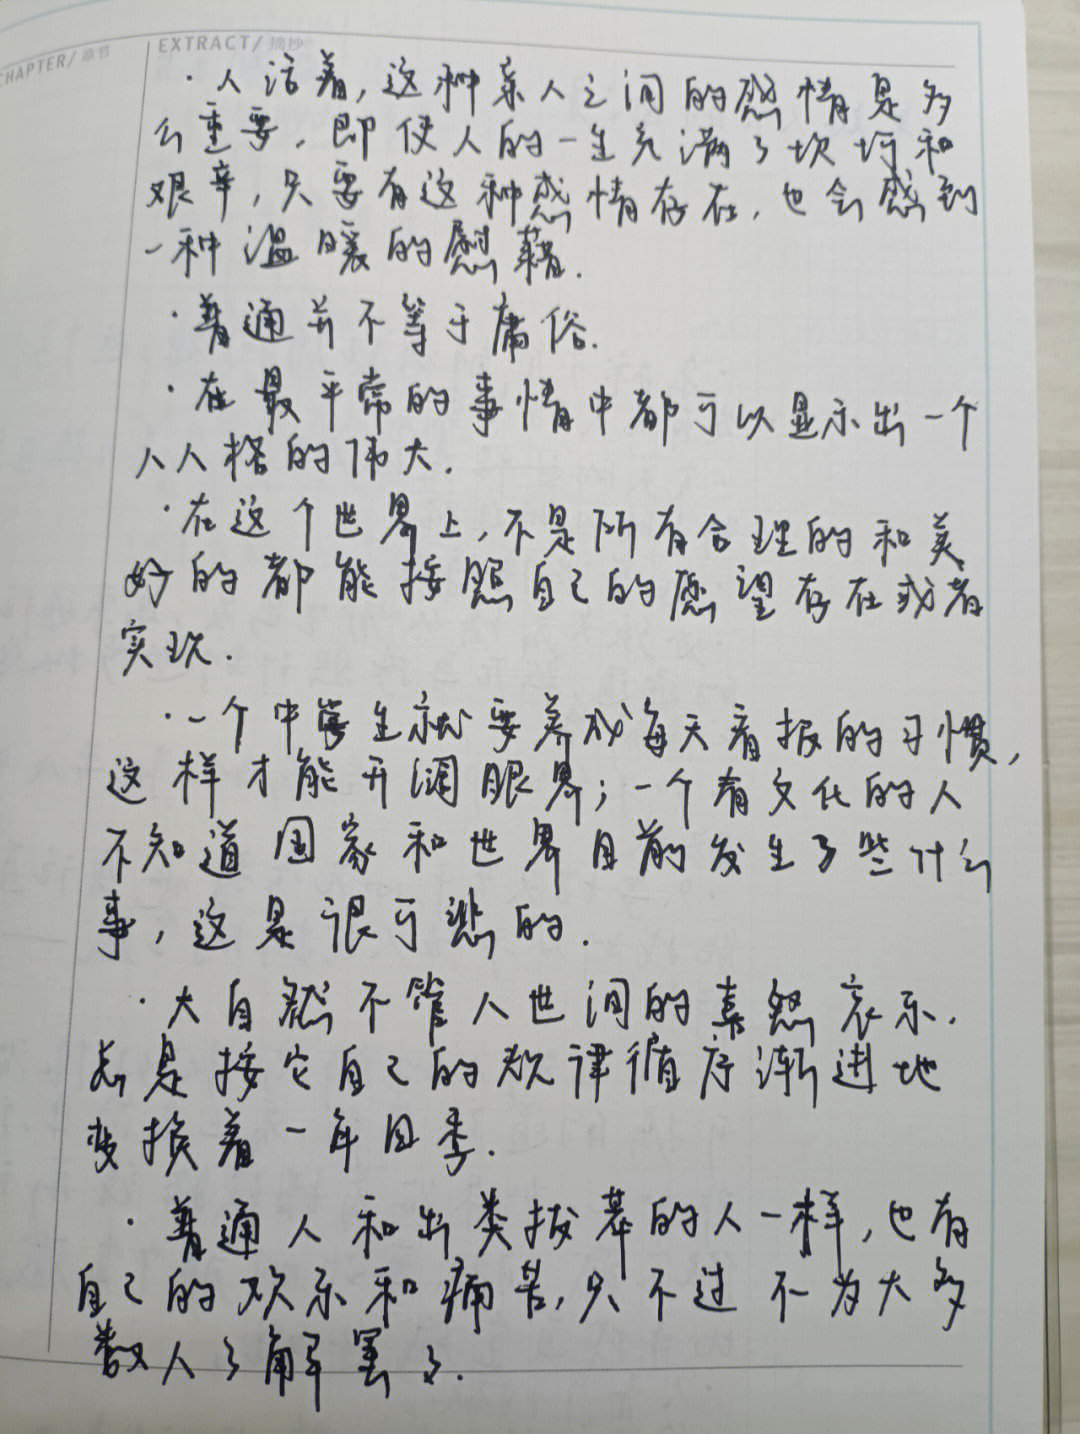 CHAPTER/ 章节
EXTRACT/ 摘抄
·人活着,这种亲人之间的感情是多
么重要,即使人的一生充满了坎坷和
艰辛,只要有这种感情存在,也会感到
一种温暖的慰藉.
·普通并不等于庸俗.
·在最平常的事情中都可以显示出一个
人人格的伟大.
·在这个世界上,不是所有合理的和美
好的都能按照自己的愿望存在或者
实现.
·一个中学生就要养成每天看报的习惯,
这样才能开阔眼界;一个有文化的人
不知道国家和世界目前发生了些什么
事,这是很可悲的.
·大自然不管人世间的喜怒哀乐.
总是按它自己的规律循序渐进地
变换着一年四季.
·普通人和出类拔萃的人一样,也有
自己的欢乐和痛苦,只不过不为大多
数人了解罢了.